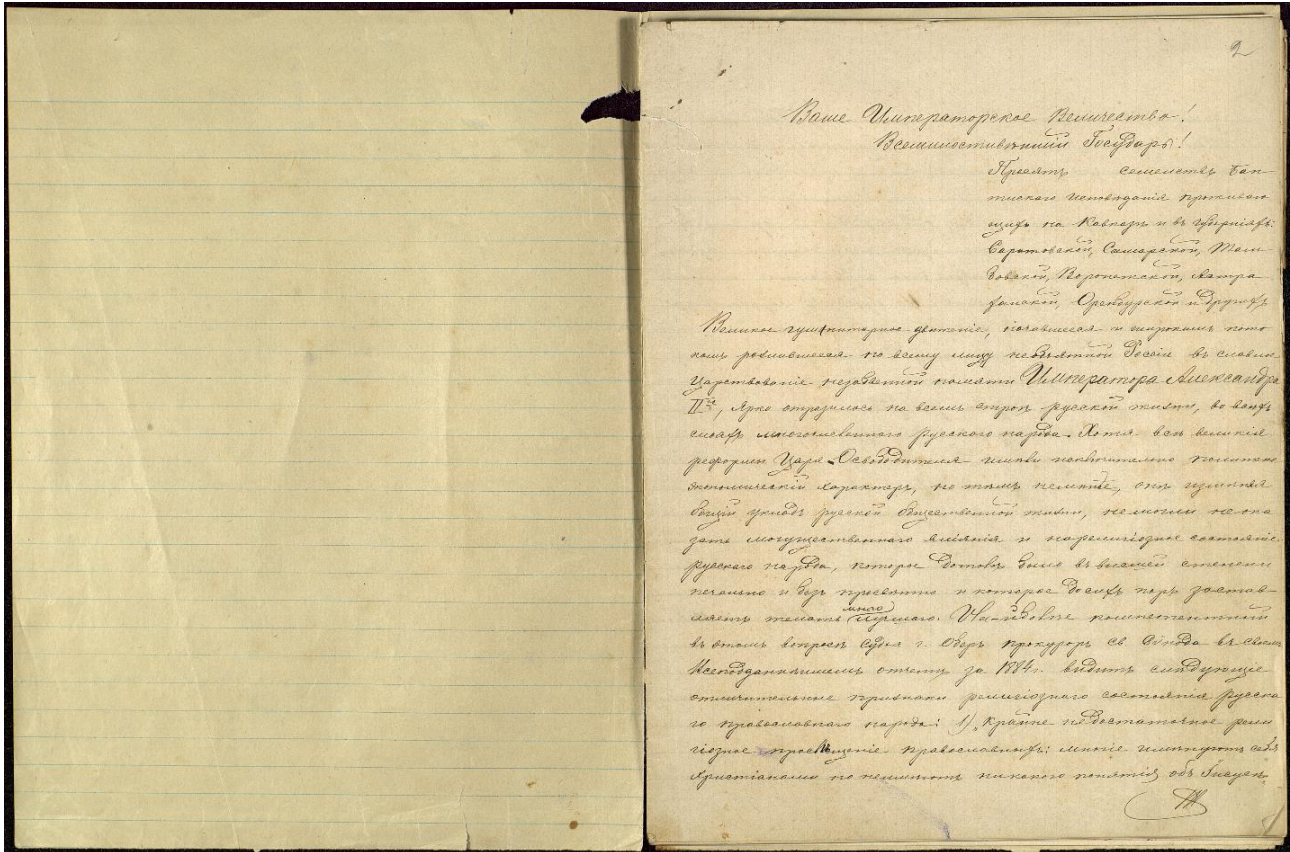 2
Ваше Императорское Величество!
Всемилостивѣйшій Государь!
Просятъ семействъ бап-
тискаго исповѣданія проживаю
щихъ на Кавказѣ и въ губерніяхъ:
Саратовской, Самарской, Там-
бовской, Воронежской, Астра
ханской, Оренбурской и другихъ
Великое гуманитарное движеніе, начавшееся и широкимъ пото
комъ розлившееся по всему лицу необъятной Россіи въ славное
царствованіе незабвенной памяти Императора Александра
IIго, ярко отразилось на всемъ строѣ русской жизни, во всѣхъ
слояхъ многочисленнаго русскаго народа. Хотя всѣ великія
реформы Царя-Освободителя имѣли исключительно политико
экономическій характеръ, но тѣмъ неменѣе, онѣ измѣняя
общій укладъ русской общественной жизни, немогли не ока
зать могущественнаго вліянія и на религіозное состояніе
русскаго народа, которое дотовѣ было въ высшей степени
печально и безъ просвѣтно и которое до сихъ поръ застав-
ляетъ желать много лучшаго. Наиболѣе компетентный
въ этомъ вопросѣ судья г. Оберъ прокуроръ Св. Сѵнода въ своемъ
Всеподданнѣйшемъ отчетѣ за 1884г. видитъ слѣдующіе
отличительные признаки религіознаго состоянія русска
го православнаго народа: 1) „Крайне недостаточное рели
гіозное просвѣщеніе православныхъ: многіе именуютъ себя
христіанами но неимѣютъ никакого понятія объ Іисусѣ